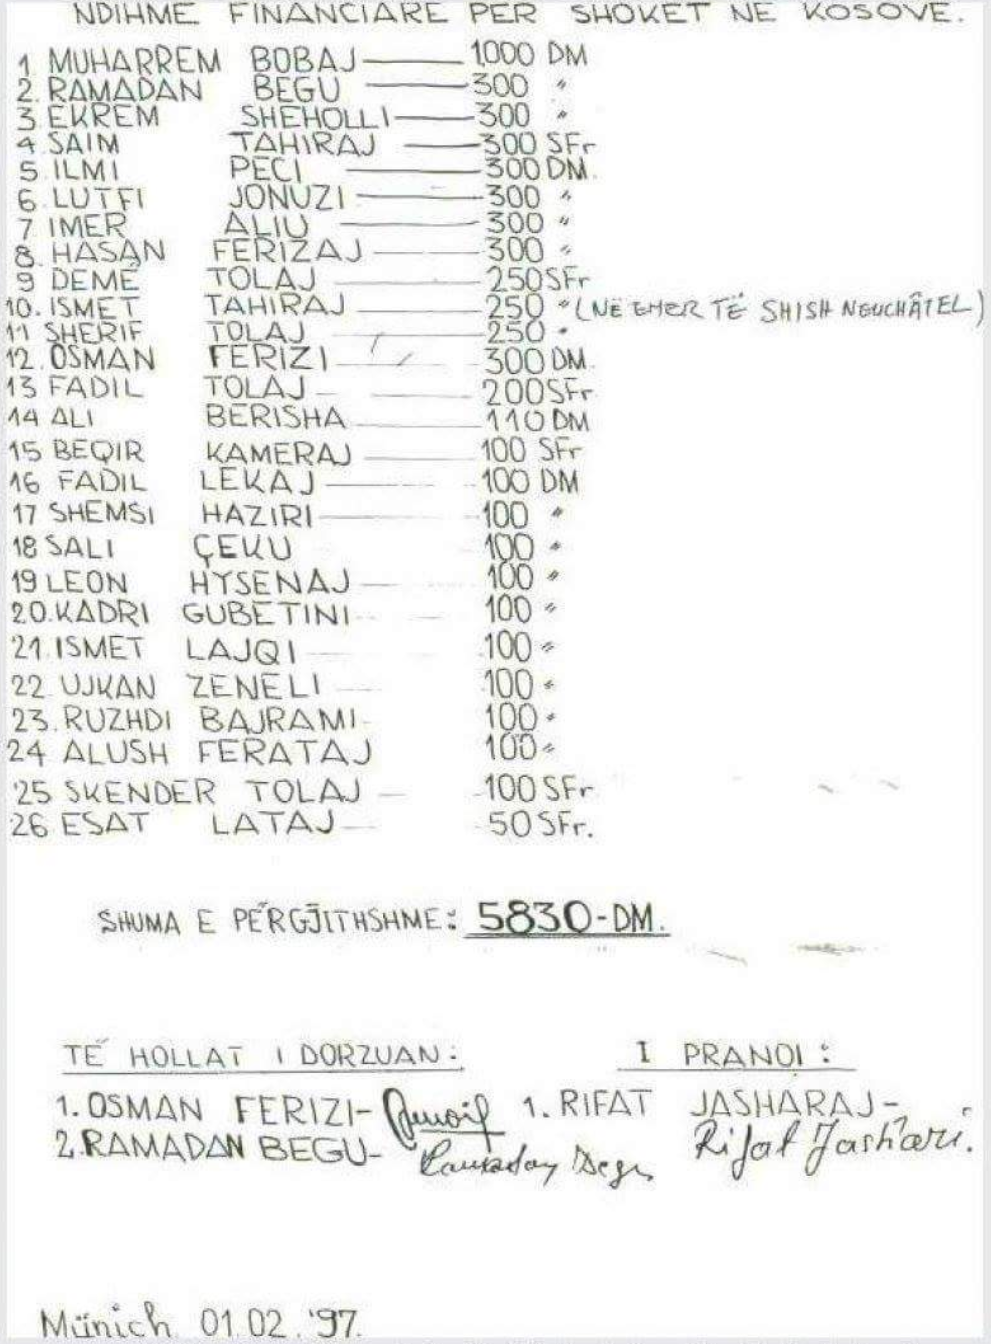 NDIHME FINANCIARE PER SHOKET NE KOSOVE.
1 MUHARREM BOBAJ 1000 DM
2. RAMADAN BEGU 300 "
3 EKREM SHEHOLLI 300 "
4. SAIM TAHIRAJ 300 SFr
5 ILMI PECI 300 DM.
6. LUTFI JONUZI 300 "
7 IMER ALIU 300 "
8. HASAN FERIZAJ 300 "
9 DEMË TOLAJ 250 SFr
10. ISMET TAHIRAJ 250 " (NË EMER TË SHISH NEUCHÂTEL)
11 SHERIF TOLAJ 250 "
12. OSMAN FERIZI 300 DM.
13 FADIL TOLAJ 200 SFr
14 ALI BERISHA 110 DM
15 BEQIR KAMERAJ 100 SFr
16 FADIL LEKAJ 100 DM
17 SHEMSI HAZIRI 100 "
18 SALI ÇEKU 100 "
19 LEON HYSENAJ 100 "
20. KADRI GUBETINI 100 "
21. ISMET LAJQI 100 "
22 UJKAN ZENELI 100 "
23. RUZHDI BAJRAMI 100 "
24 ALUSH FERATAJ 100 "
25 SKENDER TOLAJ 100 SFr
26 ESAT LATAJ 50 SFr.
SHUMA E PËRGJITHSHME: 5830-DM.
TË HOLLAT I DORZUAN: I PRANOI:
1. OSMAN FERIZI- 1. RIFAT JASHARAJ-
2. RAMADAN BEGU- Ramadan Begu Rifat Jashari.
Münich 01.02.'97.